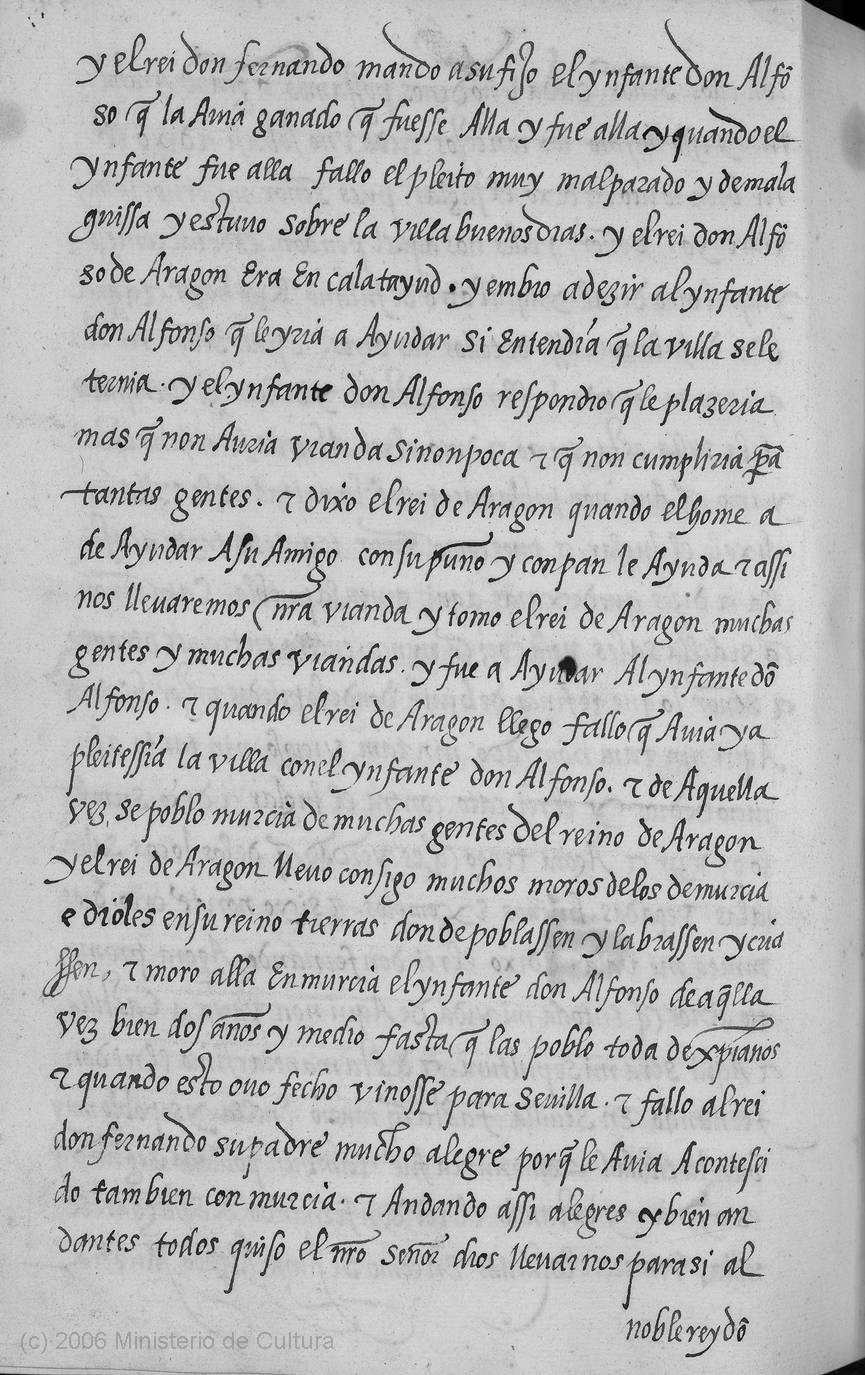 y el rei don fernando mando a su fijo el ynfante don Alfõ
so q̃ la Auia ganado q̃ fuesse Alla y fue alla y quando el
ynfante fue alla fallo el pleito muy malparado y de mala
guissa y estuuo sobre la villa buenos dias. y el rei don Alfõ
so de Aragon Era En calatayud. y embio a dezir al ynfante
don Alfonso q̃ le yria a Ayudar si Entendia q̃ la villa se le
ternia. y el ynfante don Alfonso respondio q̃ le plazeria
mas q̃ non Auria vianda sinon poca τ q̃ non cumpliria p̃a
tantas gentes. τ dixo el rei de Aragon quando el home a
de Ayudar A su Amigo con su puño y con pan le Ayuda τ assi
nos lleuaremos nr̃a vianda y tomo el rei de Aragon muchas
gentes y muchas viandas. y fue a Ayudar Al ynfante dõ
Alfonso. τ quando el rei de Aragon llego fallo q̃ Auia ya
pleitessia la villa con el ynfante don Alfonso. τ de Aquella
vez se poblo murcia de muchas gentes del reino de Aragon
y el rei de Aragon lleuo consigo muchos moros de los de murcia
e dioles en su reino tierras donde poblassen y labrassen y cria
ssen, τ moro alla En murcia el ynfante don Alfonso de aq̃lla
vez bien dos años y medio fasta q̃ las poblo toda de xp̃ianos
τ quando esto ouo fecho vinosse para Seuilla. τ fallo al rei
don fernando su padre mucho alegre porq̃ le Auia Acontesci
do tambien con murcia. τ Andando assi alegres y bien an
dantes todos quiso el nr̃o señor dios lleuar nos para si al
noble rey dõ
(c) 2006 Ministerio de Cultura